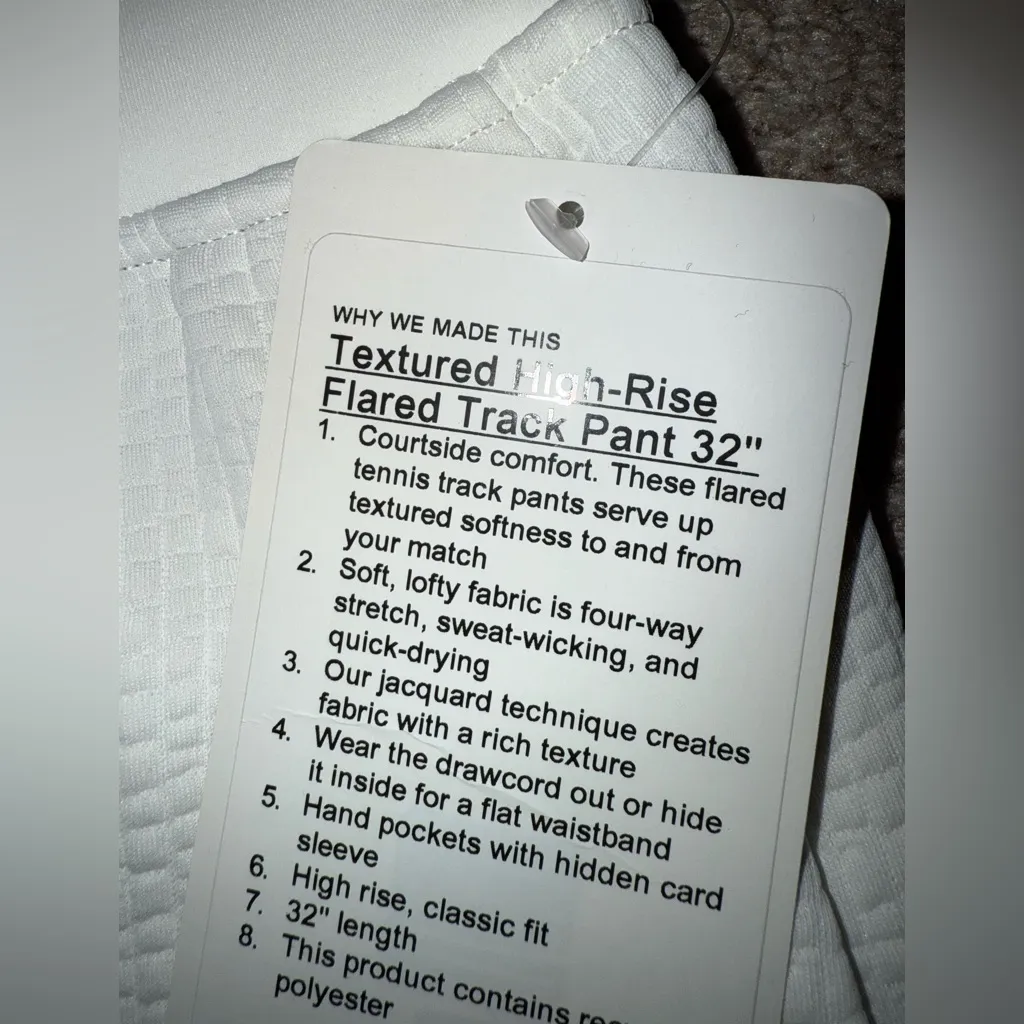 WHY WE MADE THIS
Textured High-Rise
Flared Track Pant 32"
1. Courtside comfort. These flared
tennis track pants serve up
textured softness to and from
your match
2. Soft, lofty fabric is four-way
stretch, sweat-wicking, and
quick-drying
3. Our jacquard technique creates
fabric with a rich texture
4. Wear the drawcord out or hide
it inside for a flat waistband
5. Hand pockets with hidden card
sleeve
6. High rise, classic fit
7. 32" length
8. This product contains
polyester